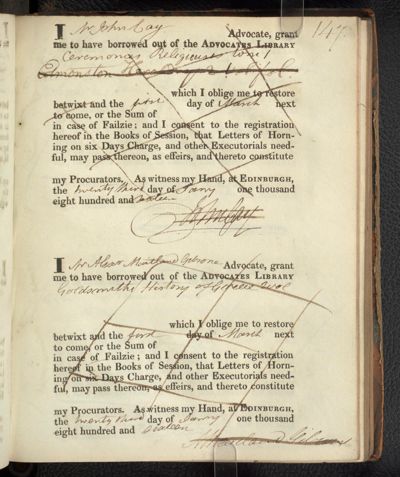 147
I Mr John Cay Advocate, grant
me to have borrowed out of the ADVOCATES LIBRARY
Ceremonies Religieuses tome
which I oblige me to restore
betwixt and the first day of March next
to come, or the Sum of
in case of Failzie; and I consent to the registration
hereof in the Books of Session, that Letters of Horn-
ing on six Days Charge, and other Executorials need-
ful, may pass thereon, as effeirs, and thereto constitute
my Procurators. As witness my Hand, at EDINBURGH,
the twenty third day of Janry one thousand
eight hundred and sixteen
John Cay
I Mr Alexr Maitland Gibson Advocate, grant
me to have borrowed out of the ADVOCATES LIBRARY
Goldsmiths History of Greece 2 vol
which I oblige me to restore
betwixt and the first day of March next
to come, or the Sum of
in case of Failzie; and I consent to the registration
hereof in the Books of Session, that Letters of Horn-
ing on six Days Charge, and other Executorials need-
ful, may pass thereon, as effeirs, and thereto constitute
my Procurators. As witness my Hand, at EDINBURGH,
the twenty third day of Janry one thousand
eight hundred and sixteen
A Maitland Gibson